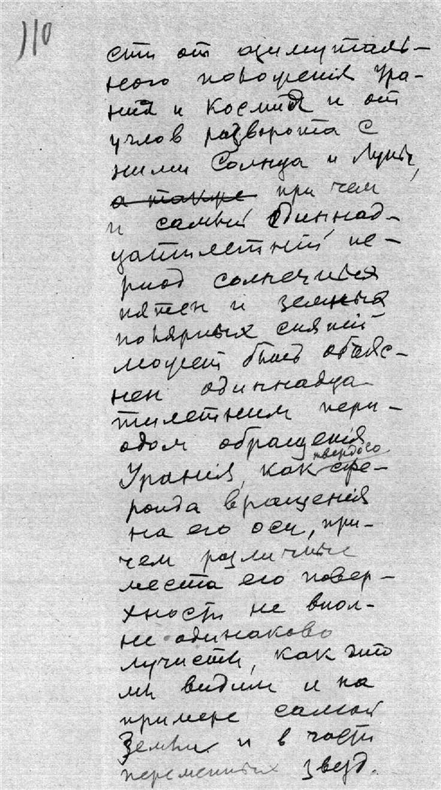 110
сти от азимуталь-
ного положенія Ура-
нія и Космія и от
углов разворота с
ними Солнца и Луны,
а также при чем
и самый одиннад-
цатилетній пе-
риод солнечных
пятен и земных
полярных сияній
может быть объяс-
нен одиннадца-
тилетним пери-
одом обращенія
твердого
Уранія, как сфе-
роида вращенія
на его оси, при-
чем различные
места его повер-
хности не впол-
не одинаково
лучисты, как это
мы видим и на
примере самой
Земли и в части
переменных звезд.